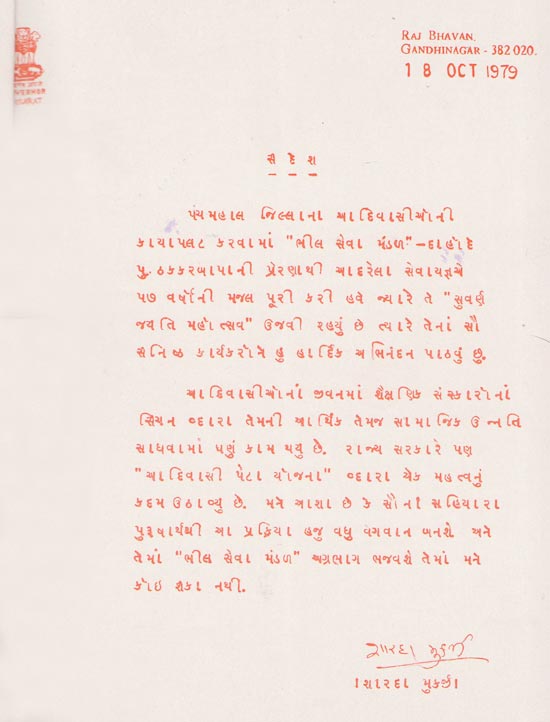 RAJ BHAVAN,
GANDHINAGAR - 382 020.
18 OCT 1979
સંદેશ
પંચમહાલ જિલ્લાના આદિવાસીઓની
કાયાપલટ કરવામાં "ભીલ સેવા મંડળ" - દાહોદે
પુ. ઠક્કરબાપાની પ્રેરણાથી આદરેલા સેવાયજ્ઞએ
૫૭ વર્ષોની મજલ પૂરી કરી હવે જ્યારે તે "સુવર્ણ
જયંતિ મહોત્સવ" ઉજવી રહ્યું છે ત્યારે તેનાં સૌ
સંનિષ્ઠ કાર્યકરોને હું હાર્દિક અભિનંદન પાઠવું છું.
આદિવાસીઓનાં જીવનમાં શૈક્ષણિક સંસ્કારોનાં
સિંચન વ્દારા તેમની આર્થિક તેમજ સામાજિક ઉન્નતિ
સાધવામાં ઘણું કામ થયું છે. રાજ્ય સરકારે પણ
"આદિવાસી પેટા યોજના" વ્દારા એક મહત્વનું
કદમ ઉઠાવ્યુ છે. મને આશા છે કે સૌનાં સહિયારા
પુરૂષાર્થથી આ પ્રક્રિયા હજુ વધુ વેગવાન બનશે અને
તેમાં "ભીલ સેવા મંડળ" અગ્રભાગ ભજવશે તેમાં મને
કોઇ શંકા નથી.
શારદા મુકર્જી
।શારદા મુકર્જી।